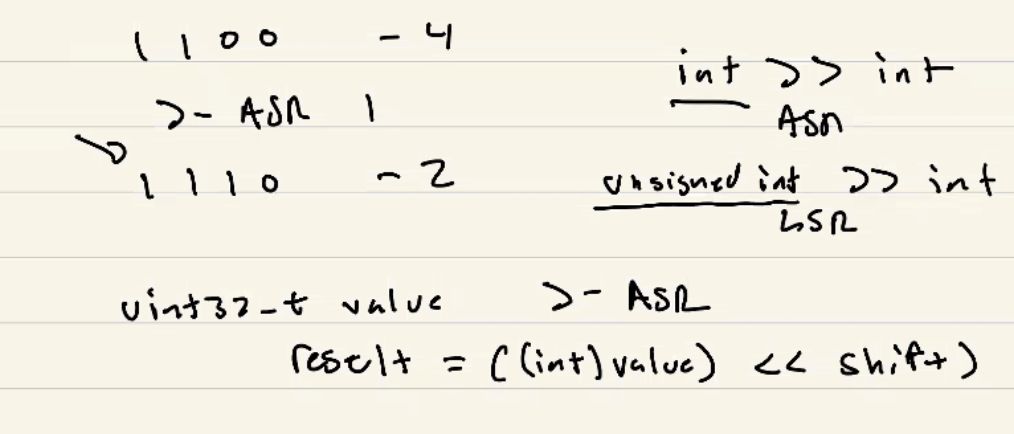 1 1 0 0 - 4
>- ASR 1
1 1 1 0 - 2
int >> int
ASR
unsigned int >> int
LSR
uint32_t value >- ASR
result = ((int)value) << shift)